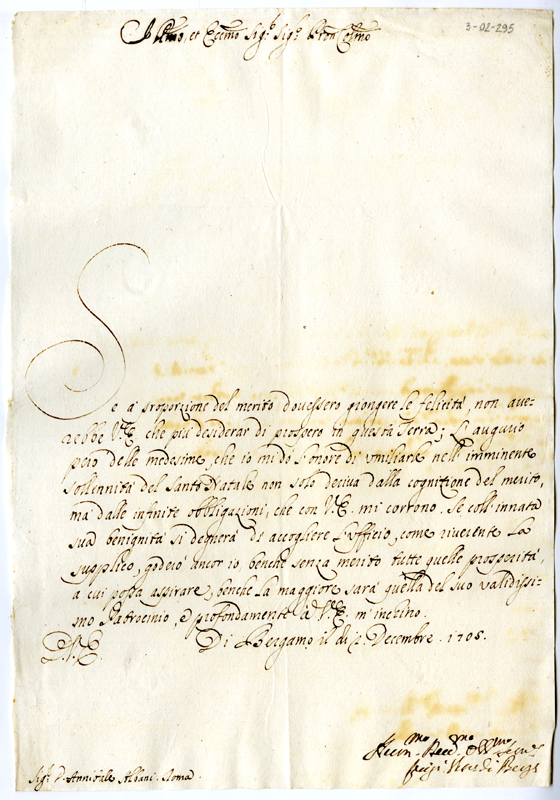 3-02-295
Ill.mo, et Ecc.mo Sig.r Sig.r Pron Col.mo
Se a proporzione del merito dovessero giongere le felicità, non ave-
rebbe V.E. che più desiderar di prospero in questa Terra; L'augurio
però delle medesime, che io mi dò l'onore di umiliare nell'imminente
sollennità del Santo Natale non solo deriva dalla cognizione del merito,
mà dalle infinite obbligazioni, che con V.E. mi corrono. Se coll'innata
sua benignità si degnerà di accogliere l'Ufficio, come riverente La
supplico, goderò ancor io, benche senza merito tutte quelle prosperità,
a cui possa aspirare, benche la maggiore sarà quella del suo validissi-
mo Patrocinio, e profondamente à V.E. m'inchino.
D.V.E. Di Bergamo il dì 2. Decembre. 1705.
Sig.r D. Annibale Albani. Roma.